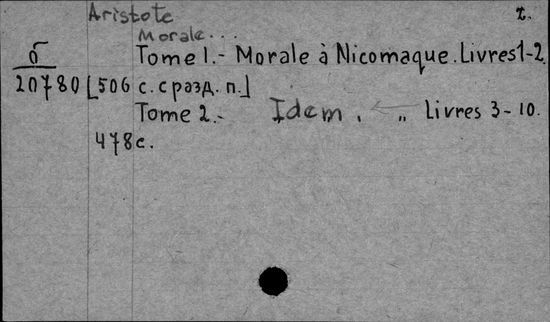 Aristote 2.
Morale...
б Tome 1.- Morale à Nicomaque. Livres 1-2.
20780 [506 с. с разд. п.]
Tome 2.- Idem. „ Livres 3-10.
478 с.